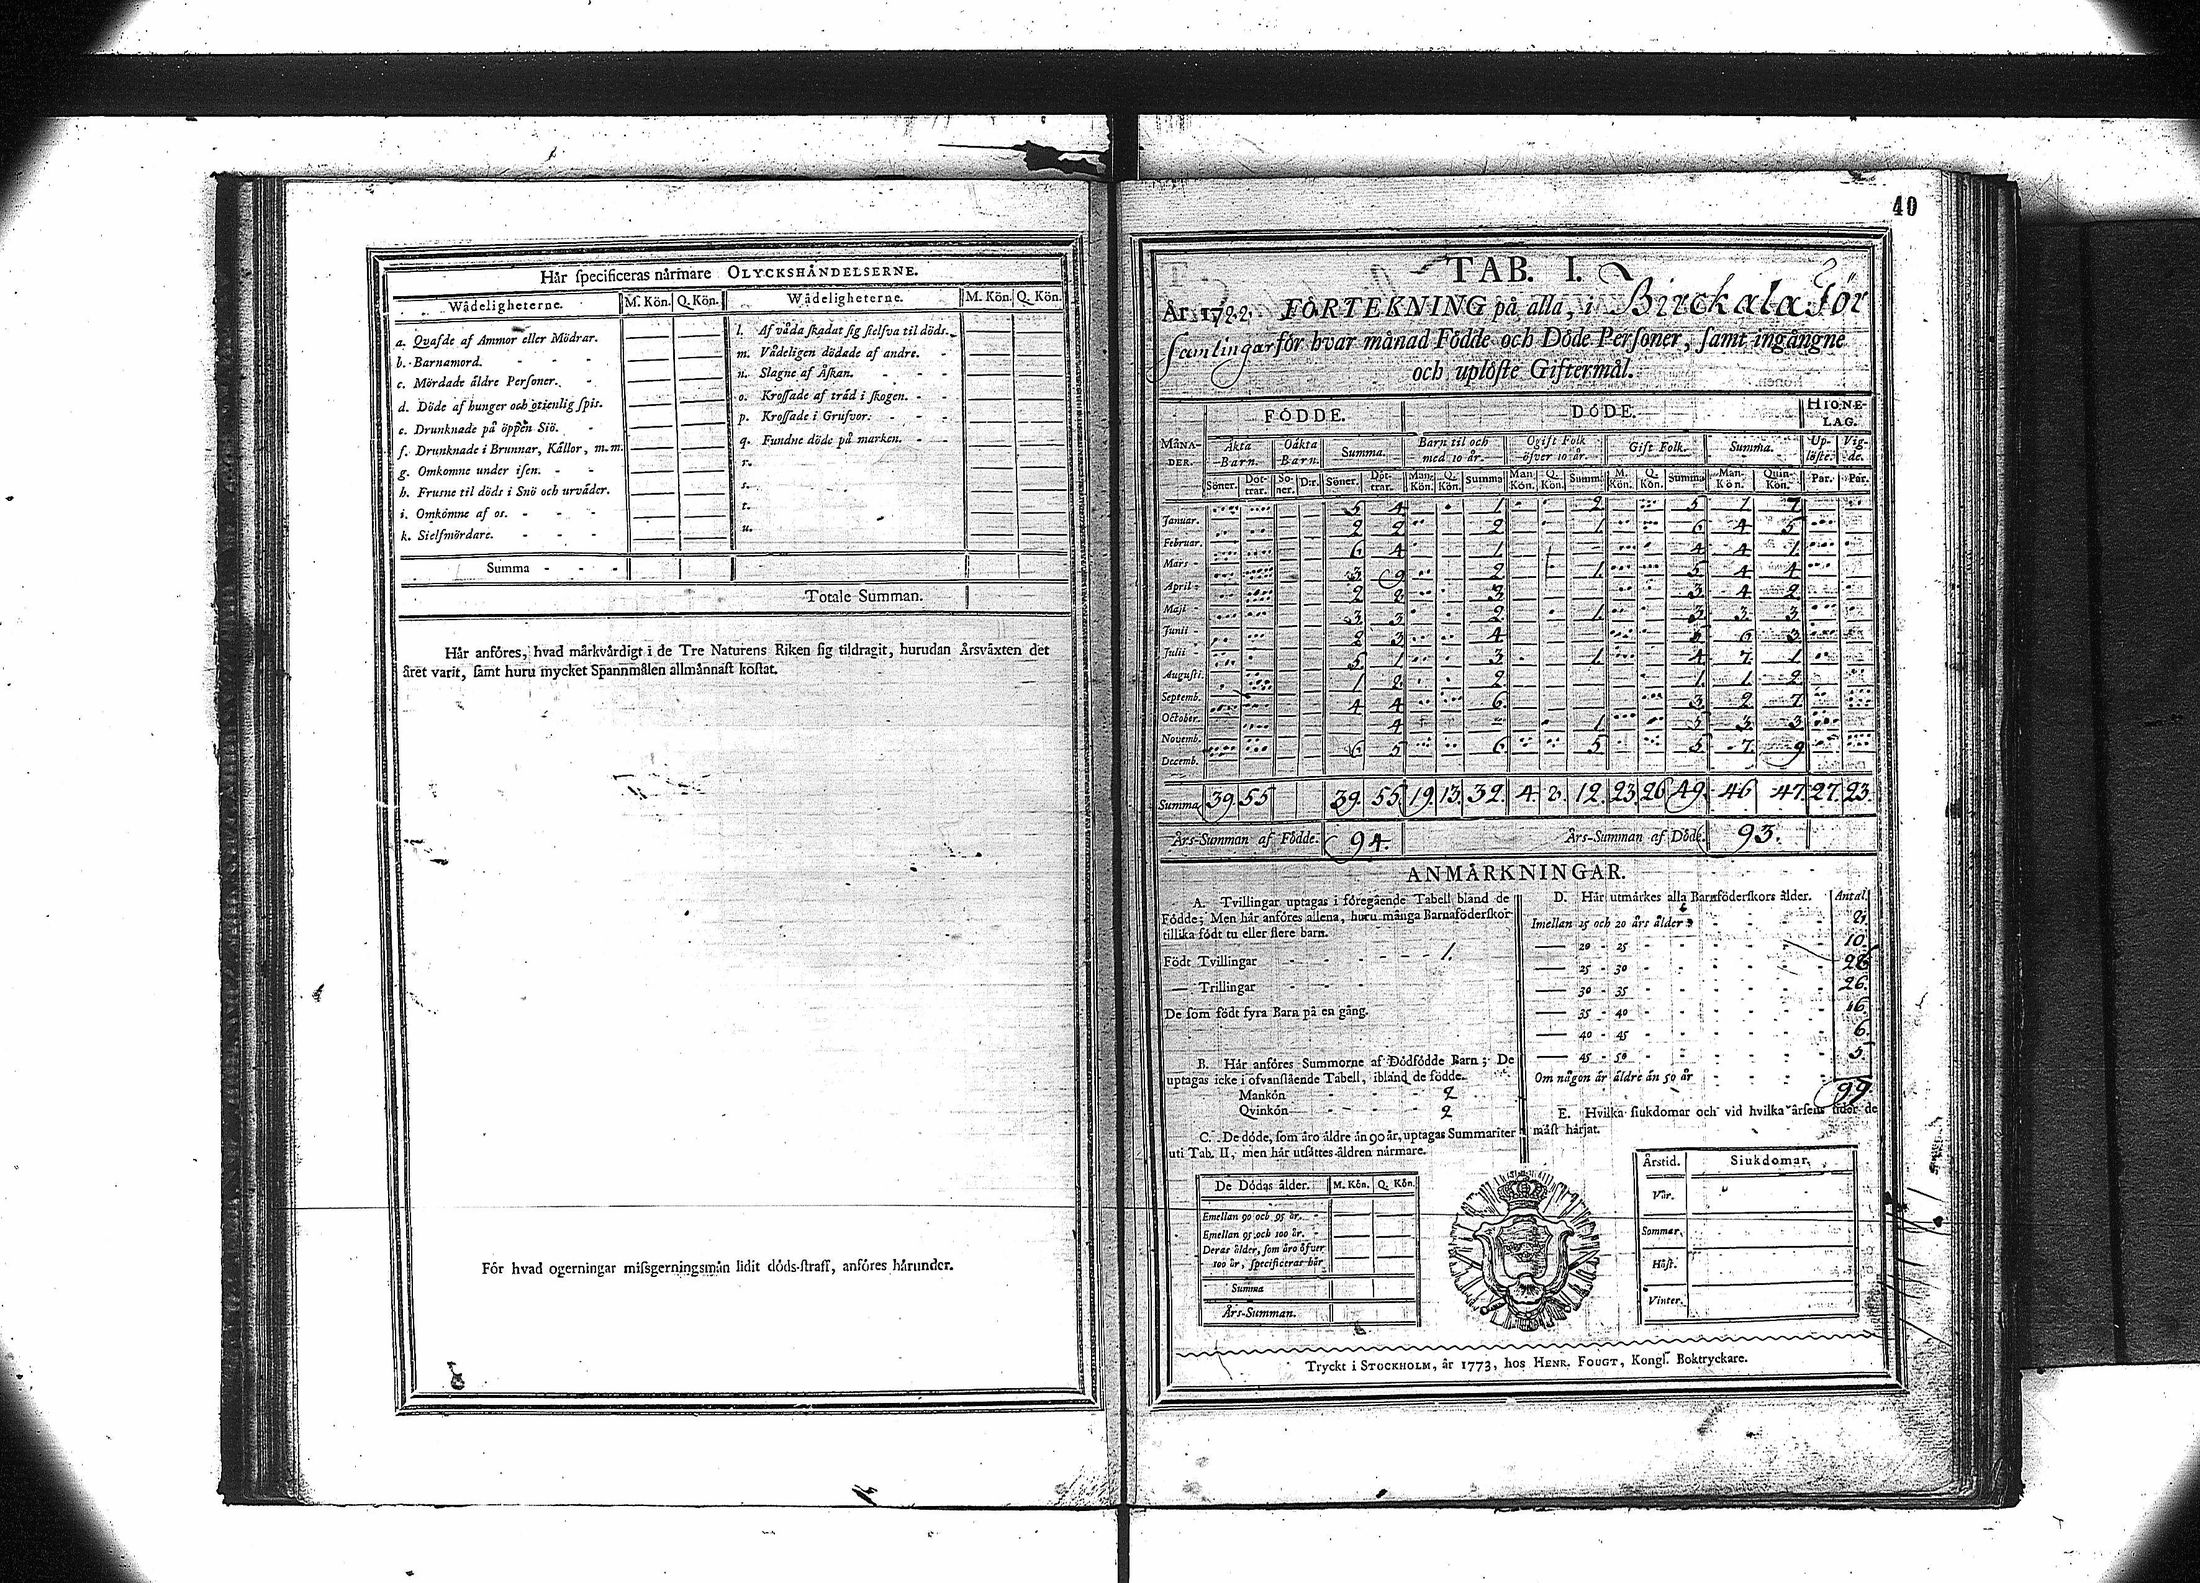 Hår specificeras nårmare OLYCKSHÅNDELSERNE.
Wådeligheterne. M. Kön. Q. Kön. Wådeligheterne. M. Kön. Q. Kön.
a. Qvafde af Ammor eller Mödrar.
b. Barnamord.
c. Mördade åldre Personer.
d. Döde af hunger och otienlig spis.
e. Drunknade på öppen Siö.
f. Drunknade i Brunnar, Kållor, m.m.
g. Omkomne under isen.
h. Frusne til döds i Snö och urvåder.
i. Omkomne af os.
k. Sielfmördare.
l. Af våda skadat sig sielfva til döds.
m. Vådeligen dödade af andre.
n. Slagne af Åskan.
o. Krossade af tråd i skogen.
p. Krossade i Grufvor.
q. Fundne döde på marken.
r.
s.
t.
u.
Summa
Totale Summan.
Hår anföres, hvad mårkvårdigt i de Tre Naturens Riken sig tildragit, hurudan Årsvåxten det
året varit, samt huru mycket Spannmålen allmånnast kostat.
För hvad ogerningar missgerningsmån lidit döds-straff, anföres hårunder.
40
TAB. I.
År FÖRTEKNING på alla, i Birckala För
samlingar för hvar månad Födde och Döde Personer, samt ingångne
och uplöste Giftermål.
FÖDDE. DÖDE. HIONE-
LAG.
MÅNA-
DER. Åkta
Barn. Oåkta
Barn. Summa. Barn til och
med 10 år. Ogift Folk
öfver 10 år. Gift Folk. Summa. Up-
löste. Vig-
de.
Söner. Döt-
trar. Sö-
ner. D:r. Söner. Döt-
trar. Man-
Kön. Q.
Kön. Summa Man
Kön. Q.
Kön. Summa M.
Kön. Q.
Kön. Summa Man-
Kön. Quin-
Kön. Par. Par.
Januar. 5 4 1 2 5 1 7
Februar. 2 2 2 1 6 4 5
Mars 6 4 1 4 4 1
April 3 9 2 1 5 4 4
Maji 2 8 3 3 4 2
Junii 3 3 2 1 3 3 3
Julii 2 3 4 5 6 3
Augusti. 5 1 3 1 4 7 1
Septemb. 1 2 2 1 1 2
October. 4 4 6 3 2 7
Novemb. 4 1 5 3 3
Decemb. 6 5 6 5 5 7 9
Summa 39. 55 39. 55. 19. 13. 32. 4. 12. 23. 26 49. 46 47. 27. 23.
Års-Summan af Födde. 94. Års-Summan af Döde. 93.
ANMÅRKNINGAR.
A. Tvillingar uptagas i föregående Tabell bland de
Födde; Men hår anföres allena, huru många Barnaföderskor
tillika födt tu eller flere barn.
Födt Tvillingar 1.
Trillingar
De som födt fyra Barn på en gång.
B. Hår anföres Summorne af Dödfödde Barn; De
uptagas icke i ofvanstående Tabell, ibland de födde.
Mankön 2
Qvinkön 2
C. De döde, som åro åldre ån 90 år, uptagas Summariter
uti Tab. II, men hår utsåttes åldren nårmare.
De Dödas ålder. M. Kön. Q. Kön.
Emellan 90 och 95 år.
Emellan 95 och 100 år.
Deras ålder, som åro öfver
100 år, specificeras hår
Summa
Års-Summan.
D. Hår utmårkes alla Barnföderskors ålder. Antal.
Imellan 15 och 20 års ålder
20 - 25 10.
25 - 30 28
30 - 35 26.
35 - 40 16.
40 - 45 6.
45 - 50 5.
Om någon år åldre ån 50 år
99
E. Hvilka siukdomar och vid hvilka årsens tider de
måst hårjat.
Årstid. Siukdomar.
Vår.
Sommar.
Höst.
Vinter.
Tryckt i STOCKHOLM, år 1773, hos HENR. FOUGT, Kongl. Boktryckare.